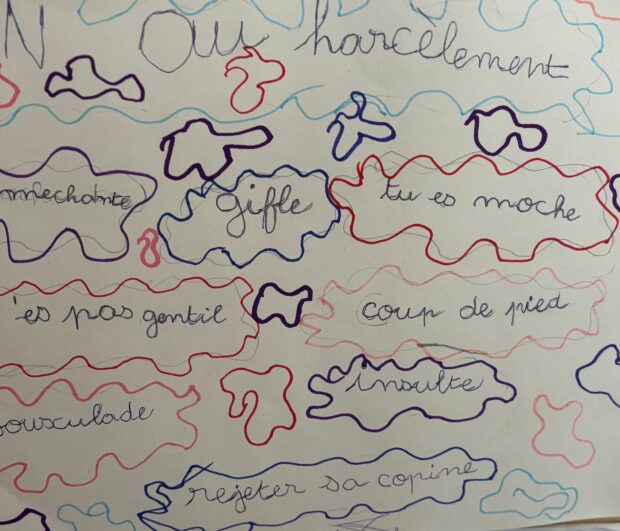 N au harcèlement
mechante
gifle
tu es moche
'es pas gentil
coup de pied
insulte
ousculade
rejeter sa copine